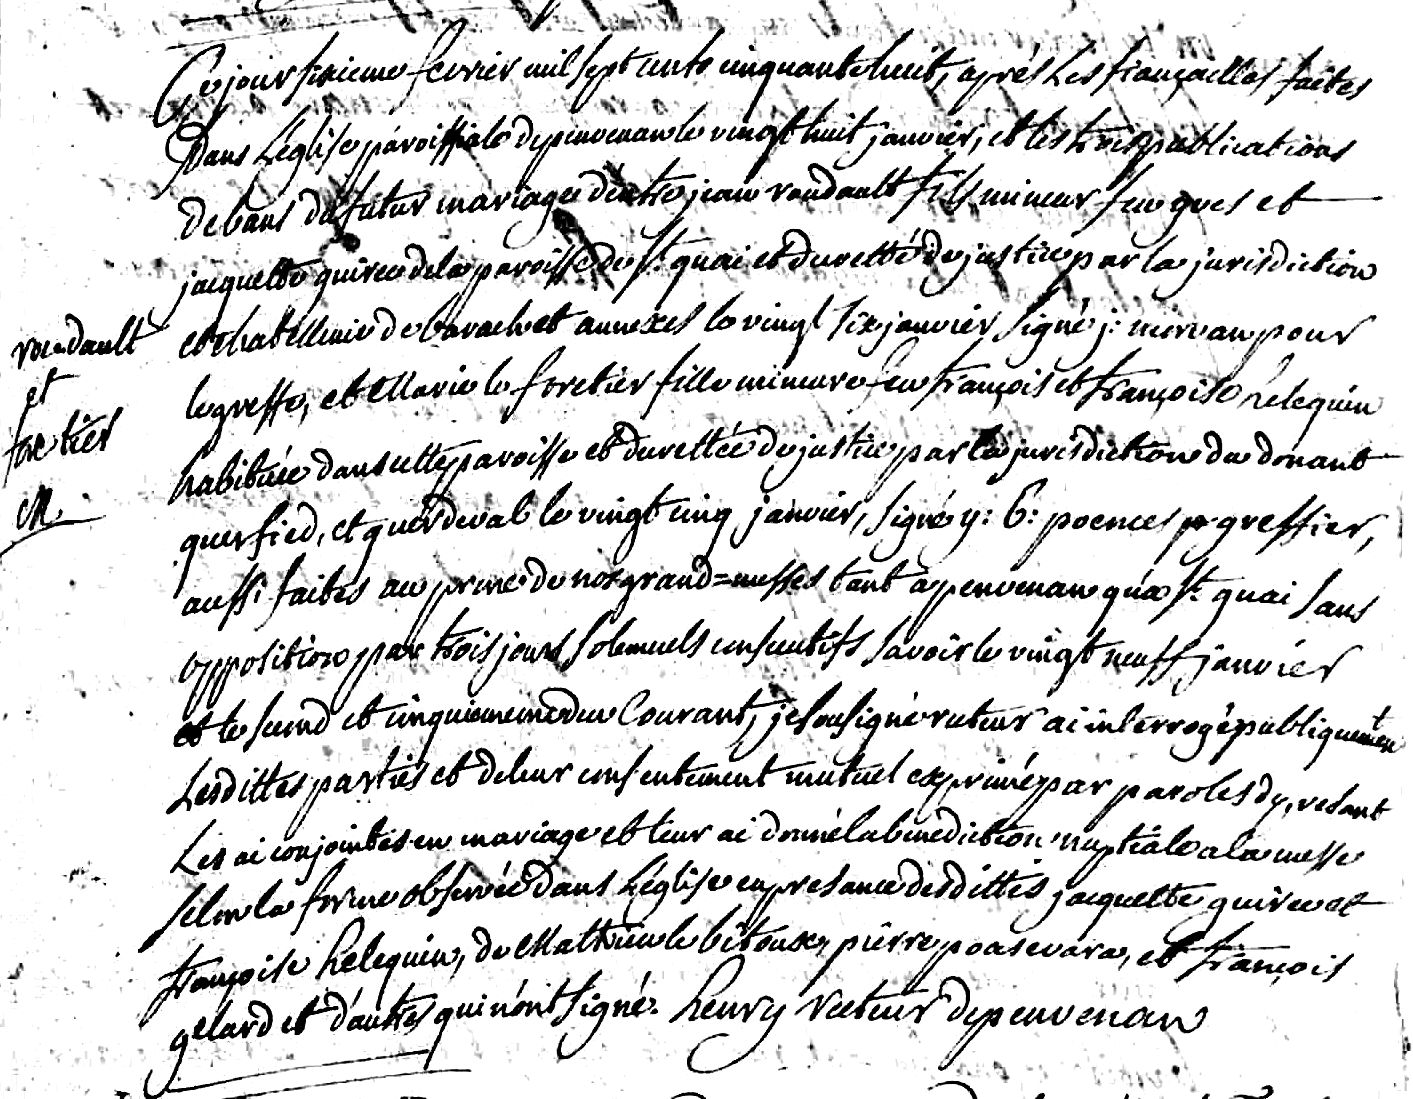 Ce jour sixieme fevrier mil sept cents cinquante huit, aprés Les fiançailles faites
Dans L'église paroissiale de penvenan le vingt huit janvier, et les trois publications
de bans du futur mariage d'entre jean roudault fils mineur feu yves et
jacquette guirec de la paroisse de St quai et decretté de justice par la jurisdiction
et chatellenie de barach et annexes le vingt six janvier signé j: mervan pour
le greffe, et Marie le foretier fille mineure feu françois et françoise heleguin
habituée dans cette paroisse et decrettée de justice par la jurisdiction du donant
querfied, et querdeval le vingt cinq janvier, signé y: G: poences pr greffier,
aussi faites au prone de nos grand=messes tant a penvenan qu'a St quai sans
opposition par trois jours solemnels consecutifs savoir le vingt neuff janvier
et le second et cinquiememe du Courant, je sousigné recteur ai interrogé publiquement
Lesdittes parties et de leur consentement mutuel exprimé par paroles dy,resant
Les ai conjointes en mariage et leur ai donné la benediction nuptiale a la messe
selon la forme observée dans L'église en presance desdittes jacquette guirec et
françoise heleguin, de Mathieu le bitoux, pierre poasevara, et françois
gelard et d'autres qui n'ont signé. henry recteur de penvenan
roudault
et
foretier
M.